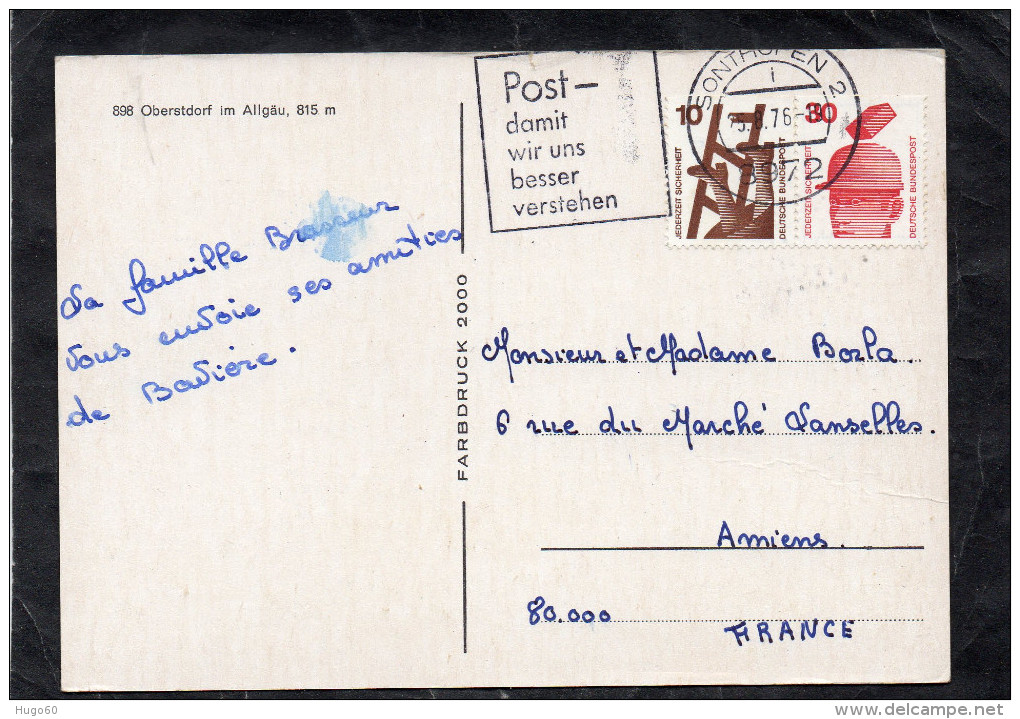 898 Oberstdorf im Allgäu, 815 m
La famille Brasseur
vous envoie ses amitiés
de Bavière.
FARBDRUCK 2000
Post-
damit
wir uns
besser
verstehen
SONTHOFEN 2
i
.8.76-
8972
10
JEDERZEIT SICHERHEIT
DEUTSCHE BUNDESPOST
30
JEDERZEIT SICHERHEIT
DEUTSCHE BUNDESPOST
Monsieur et Madame Borla.
6 rue du Marché Lanselles.
Amiens.
80.000
FRANCE
Hugo60
delcampe.net